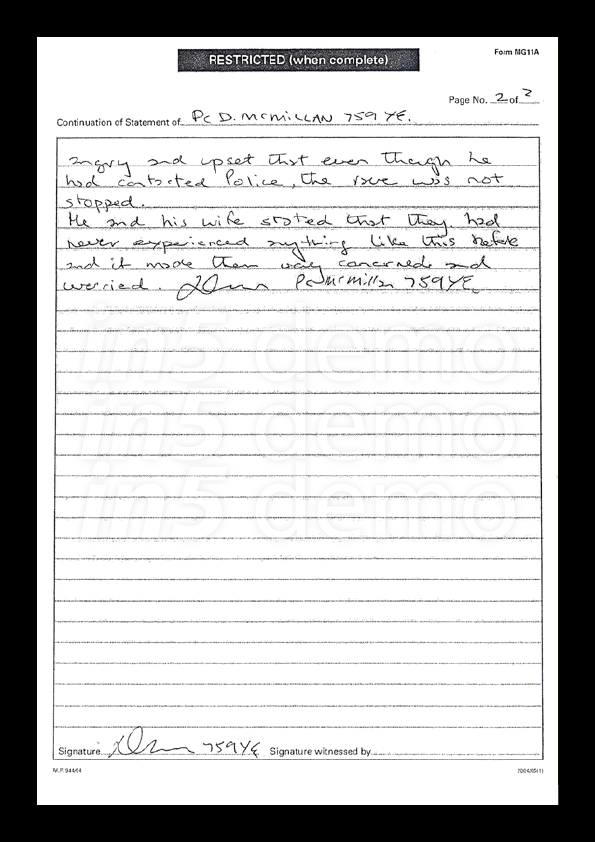 RESTRICTED (when complete)
Form MG11A
Page No. 2 of 2
Continuation of Statement of PC D. McMILLAN 759 YE.
angry and upset that even though he
had contacted Police, the rave was not
stopped.
He and his wife stated that they had
never experienced anything like this before
and it made them very concerned and
worried. PC McMillan 759 YE.
in5 demo
in5 demo
in5 demo
Signature 759 YE Signature witnessed by
M.P. 944/04
2004/05(1)